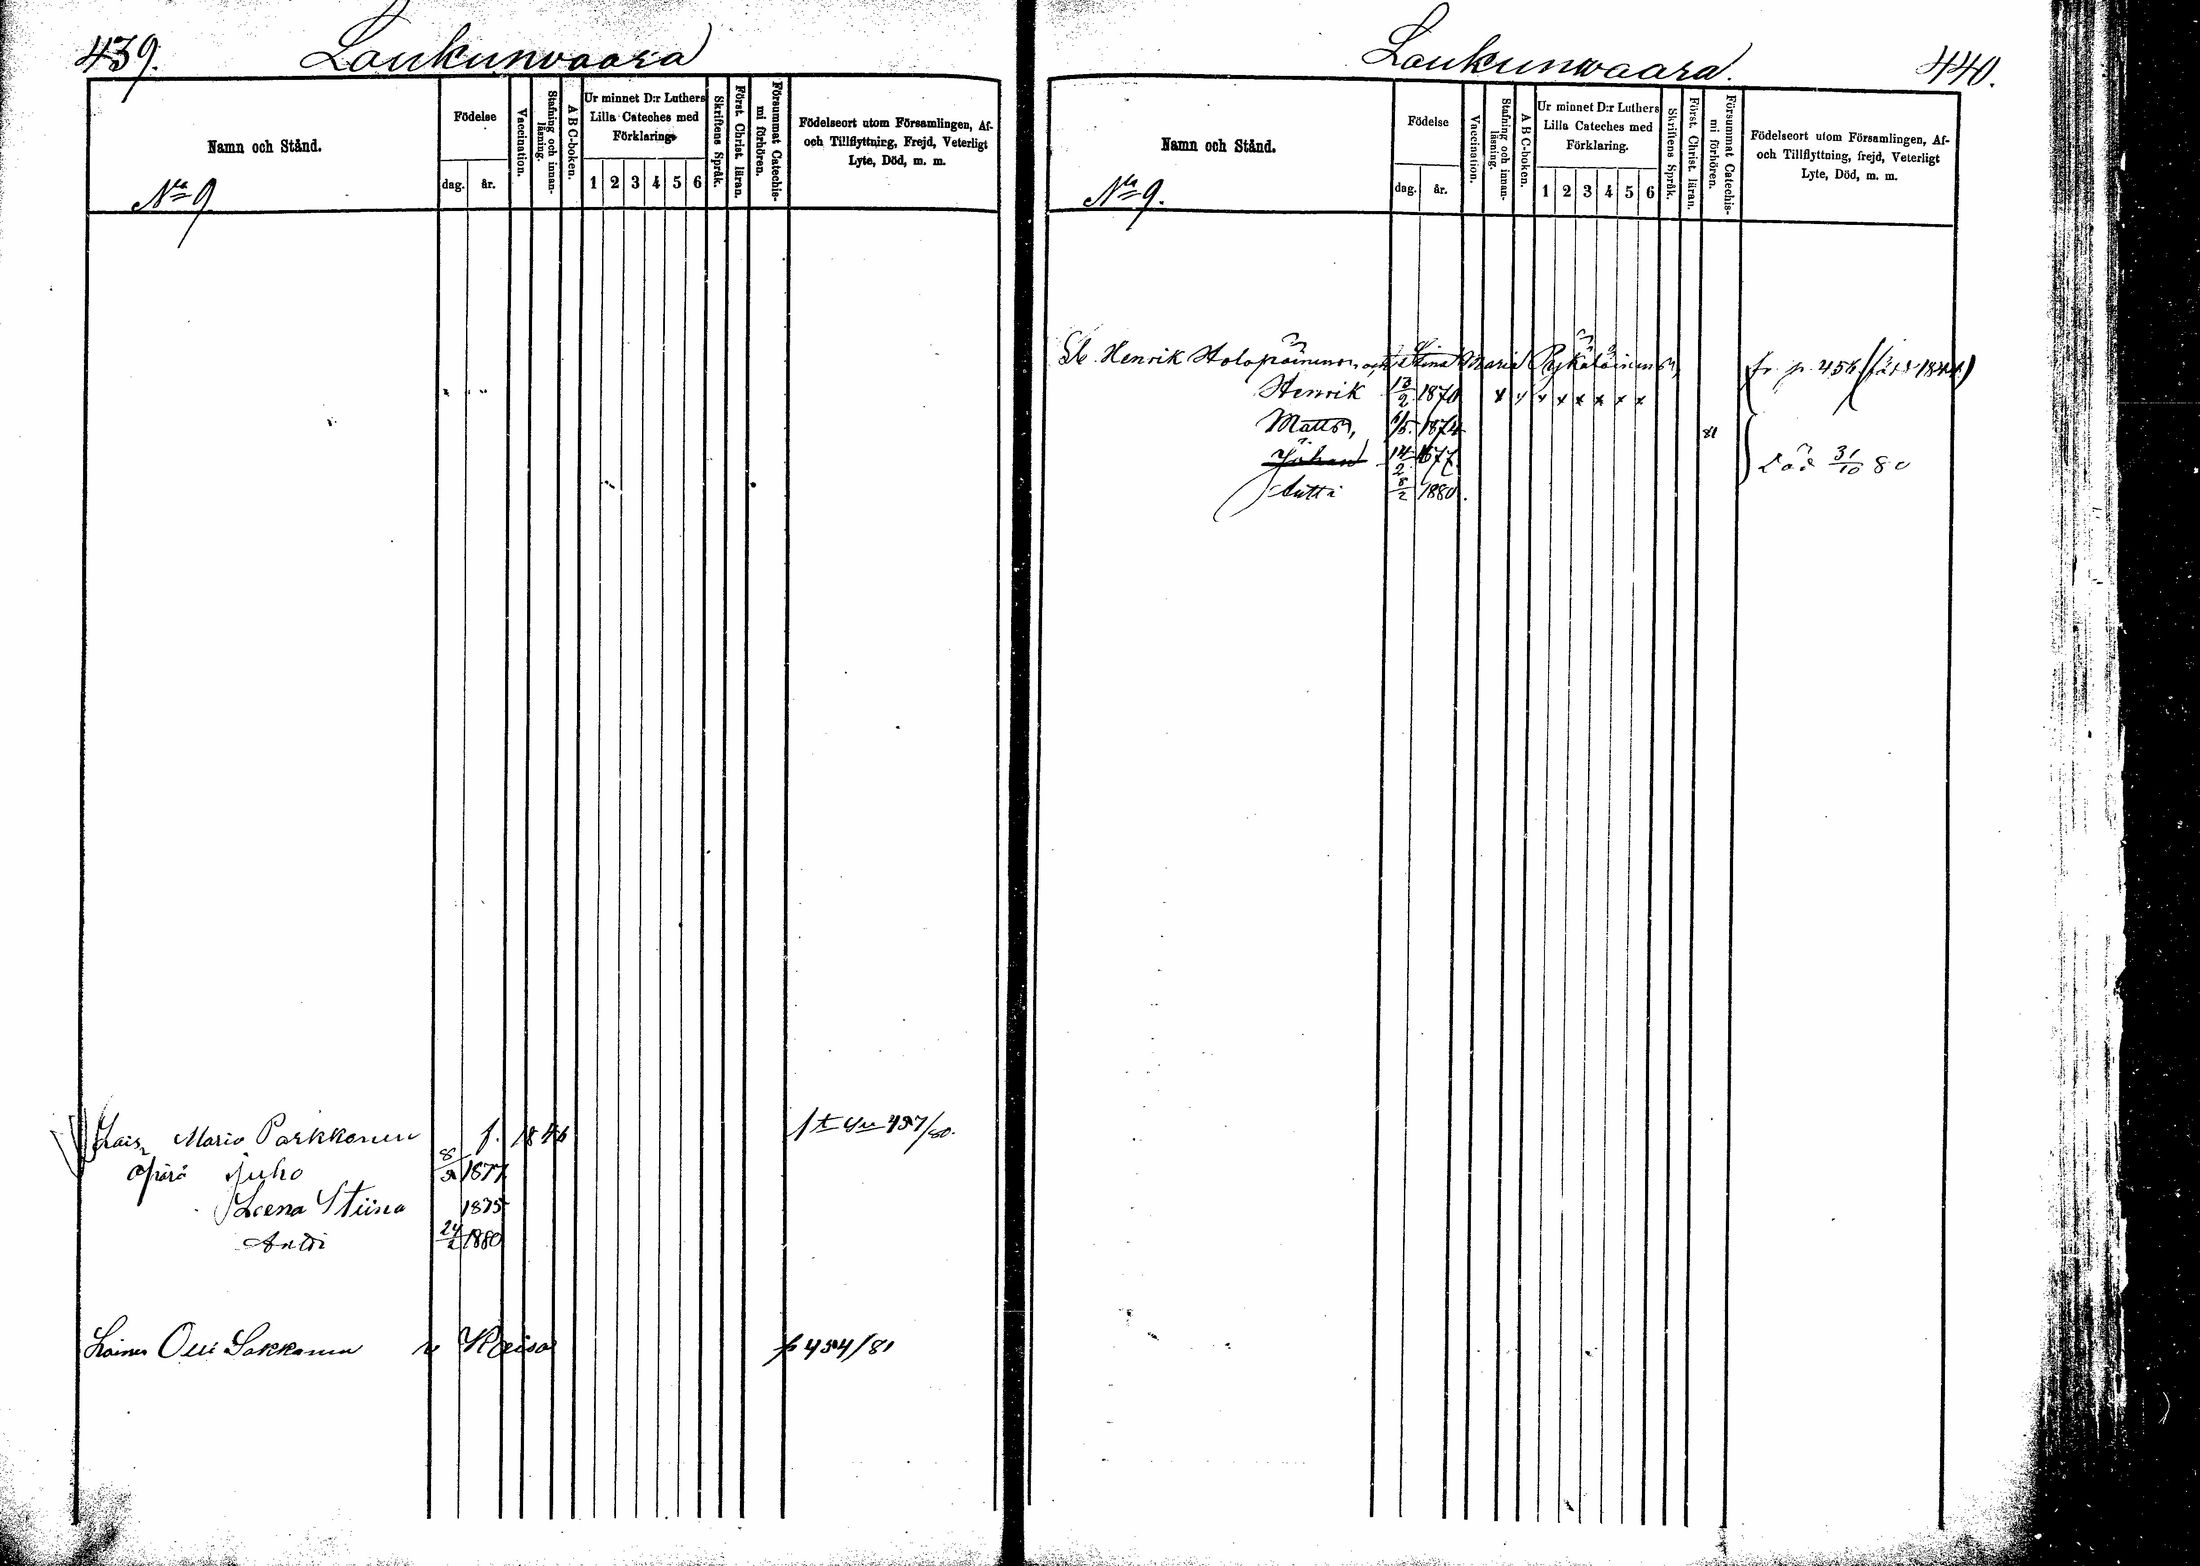 439.
Loukunvaara
Namn och Stånd.
No 9
Födelse
dag.
år.
Vaccination.
Stafning och innan-
läsning.
A B C-boken.
Ur minnet D:r Luthers
Lilla Cateches med
Förklaring.
1 2 3 4 5 6
Skriftens Språk.
Först. Christ. läran.
Försummat Catechis-
mi förhören.
Födelseort utom Församlingen, Af-
och Tillflyttning, Frejd, Veterligt
Lyte, Död, m. m.
Maria Parkkonen f. 1846
Juho 8/2 1877
Leena Stiina 1875
Antti 24/2 1880
Olli Sakkonen Reisa p 454/81
Loukunwaara.
440.
Namn och Stånd.
No 9.
Födelse
dag.
år.
Vaccination.
Stafning och innan-
läsning.
A B C-boken.
Ur minnet D:r Luthers
Lilla Cateches med
Förklaring.
1 2 3 4 5 6
Skriftens Språk.
Först. Christ. läran.
Försummat Catechis-
mi förhören.
Födelseort utom Församlingen, Af-
och Tillflyttning, frejd, Veterligt
Lyte, Död, m. m.
Henrik Holopainens och Stina Maria Pykäläinens, fr. p.
Henrik 13/2 1870 x x x x x x x x
Matts, 1874 81
Johan 14/2 1877 Död 31/10 80
Antti 8/2 1880.